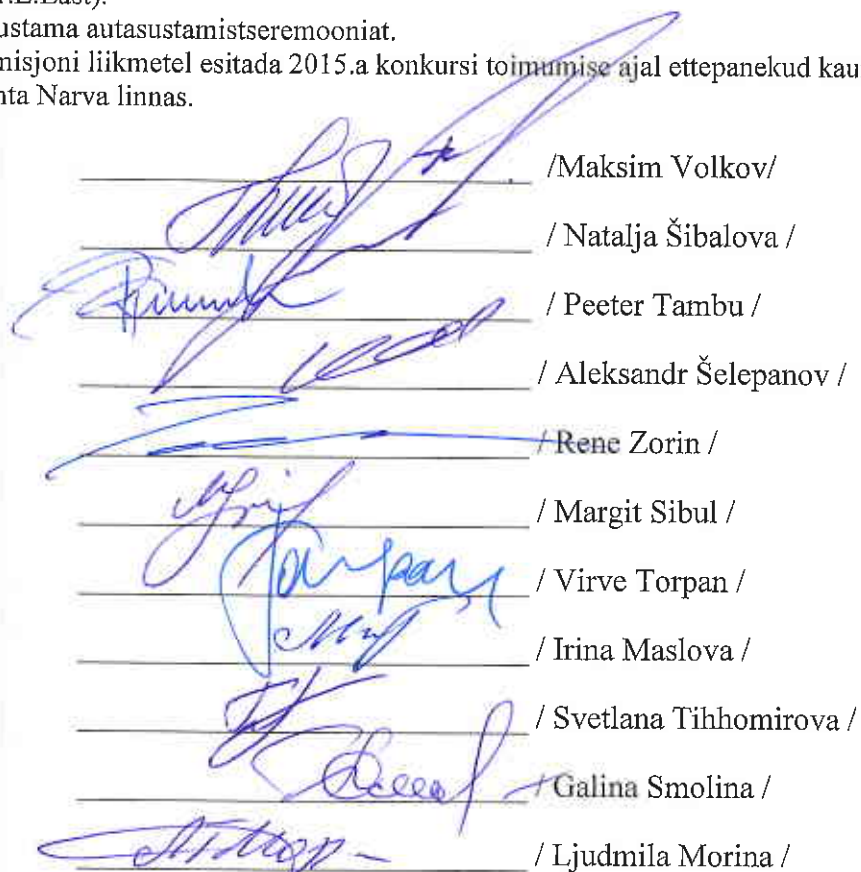 ustama autasustamistseremooniat.
misjoni liikmetel esitada 2015.a konkursi toimumise ajal ettepanekud kau
nta Narva linnas.
/Maksim Volkov/
/ Natalja Šibalova /
/ Peeter Tambu /
/ Aleksandr Šelepanov /
/ Rene Zorin /
/ Margit Sibul /
/ Virve Torpan /
/ Irina Maslova /
/ Svetlana Tihhomirova /
/ Galina Smolina /
/ Ljudmila Morina /